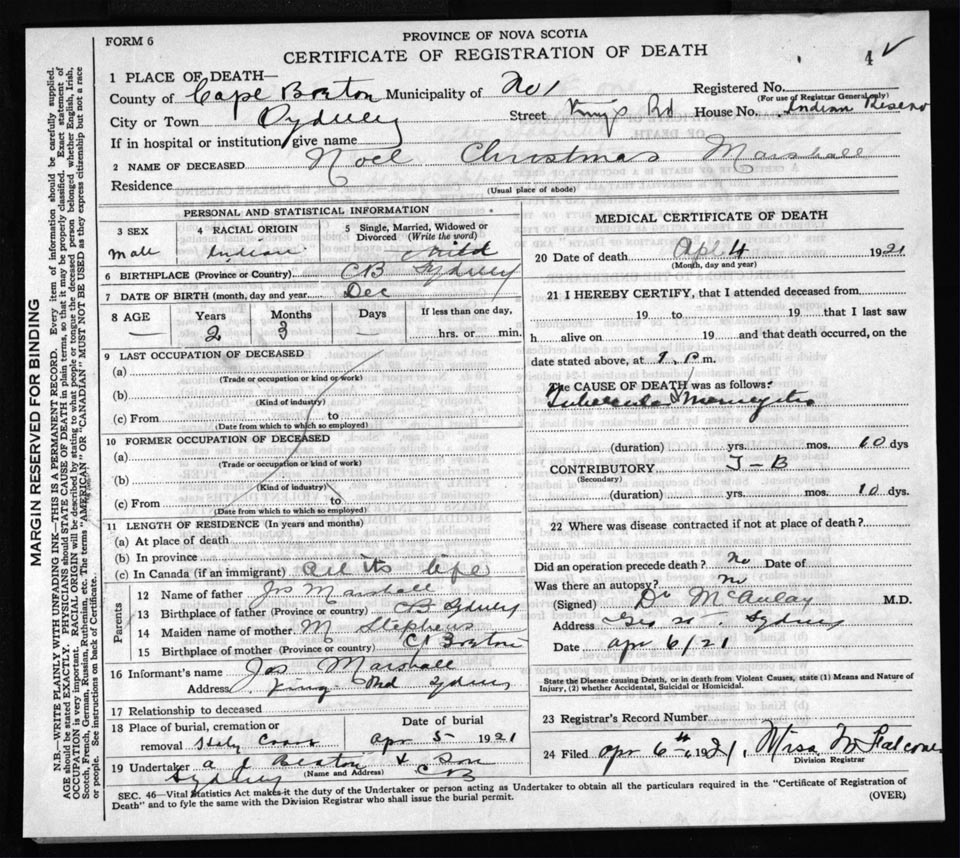 FORM 6
PROVINCE OF NOVA SCOTIA
CERTIFICATE OF REGISTRATION OF DEATH
4
1 PLACE OF DEATH—
County of Cape Breton Municipality of No 1 Registered No.
(For use of Registrar General only)
City or Town Sydney Street Kings Rd House No. Indian Reserve
If in hospital or institution, give name
2 NAME OF DECEASED Noel Christmas Marshall
Residence
(Usual place of abode)
PERSONAL AND STATISTICAL INFORMATION
3 SEX 4 RACIAL ORIGIN 5 Single, Married, Widowed or Divorced (Write the word)
Male Indian Child
6 BIRTHPLACE (Province or Country) CB Sydney
7 DATE OF BIRTH (month, day and year) Dec
8 AGE Years Months Days If less than one day,
— 2 3 — hrs. or min.
9 LAST OCCUPATION OF DECEASED
(a)
(Trade or occupation or kind or work)
(b)
(Kind of industry)
(c) From to
(Date from which to which so employed)
10 FORMER OCCUPATION OF DECEASED
(a)
(Trade or occupation or kind of work)
(b)
(Kind of industry)
(c) From to
(Date from which to which so employed)
11 LENGTH OF RESIDENCE (In years and months)
(a) At place of death
(b) In province
(c) In Canada (if an immigrant) all its life
Parents
12 Name of father Jos Marshall
13 Birthplace of father (Province or country) CB Sydney
14 Maiden name of mother M Stephens
15 Birthplace of mother (Province or country) C Breton
16 Informant's name Jos Marshall
Address King Rd Sydney
17 Relationship to deceased
18 Place of burial, cremation or removal Holy Cross
Date of burial
Apr 5 1921
19 Undertaker A J Beaton & Son
(Name and Address)
Sydney CB
MEDICAL CERTIFICATE OF DEATH
20 Date of death Apl 4 1921
(Month, day and year)
21 I HEREBY CERTIFY, that I attended deceased from
19 to 19 that I last saw
h alive on 19 and that death occurred, on the
date stated above, at P m.
The CAUSE OF DEATH was as follows:
Tubercular Meningitis
(duration) yrs. mos. 10 dys
CONTRIBUTORY T-B
(Secondary)
(duration) yrs. mos. 10 dys.
22 Where was disease contracted if not at place of death?
Did an operation precede death? No Date of
Was there an autopsy? No
(Signed) Dr McAulay M.D.
Address Geo St. Sydney
Date Apr 6/21
State the Disease causing Death, or in death from Violent Causes, state (1) Means and Nature of
Injury, (2) whether Accidental, Suicidal or Homicidal.
23 Registrar's Record Number
24 Filed Apr 6th 1921, Mrs
Division Registrar
SEC. 46—Vital Statistics Act makes it the duty of the Undertaker or person acting as Undertaker to obtain all the particulars required in the "Certificate of Registration of
Death" and to fyle the same with the Division Registrar who shall issue the burial permit. (OVER)
MARGIN RESERVED FOR BINDING
N.B.—WRITE PLAINLY WITH UNFADING INK—THIS IS A PERMANENT RECORD. Every item of information should be carefully supplied.
AGE should be stated EXACTLY. PHYSICIANS should STATE CAUSE OF DEATH in plain terms, so that it may be properly classified. Exact statement of
OCCUPATION is very important. RACIAL ORIGIN will be described by stating to what people or tongue the deceased person belonged whether English, Irish,
Scotch, French, German, Russian, Ruthenian, etc. The terms "AMERICAN" OR "CANADIAN" MUST NOT BE USED as they express citizenship but not a race
or people. See instructions on back of Certificate.